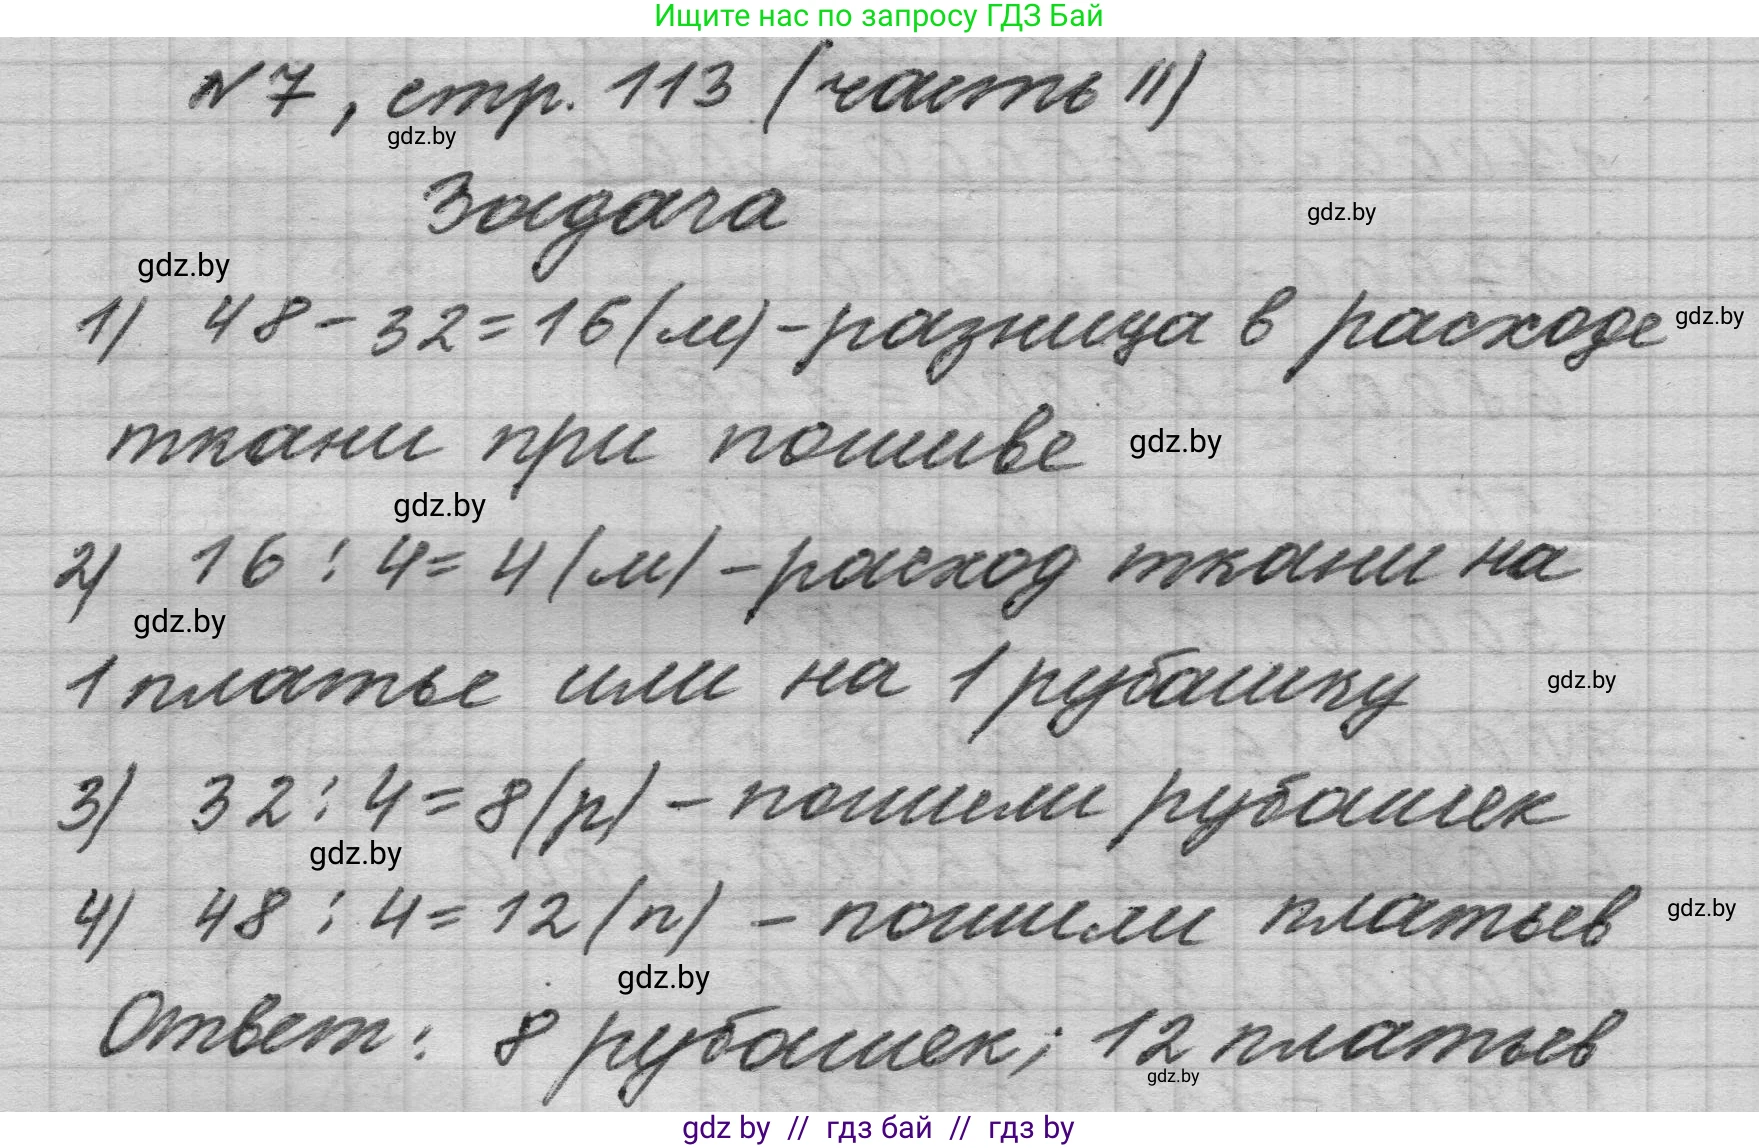 Ищите нас по запросу ГДЗ Бай
№7, стр. 113 (часть II)
gdz.by
Задача
gdz.by
gdz.by
1) 48 - 32 = 16 (м) - разница в расходе
gdz.by
ткани при пошиве
gdz.by
gdz.by
2) 16 : 4 = 4 (м) - расход ткани на
gdz.by
1 платье или на 1 рубашку
gdz.by
3) 32 : 4 = 8 (р) - пошили рубашек
gdz.by
4) 48 : 4 = 12 (п) - пошили платьев
gdz.by
gdz.by
Ответ: 8 рубашек; 12 платьев
gdz.by
gdz by // гдз бай // гдз by